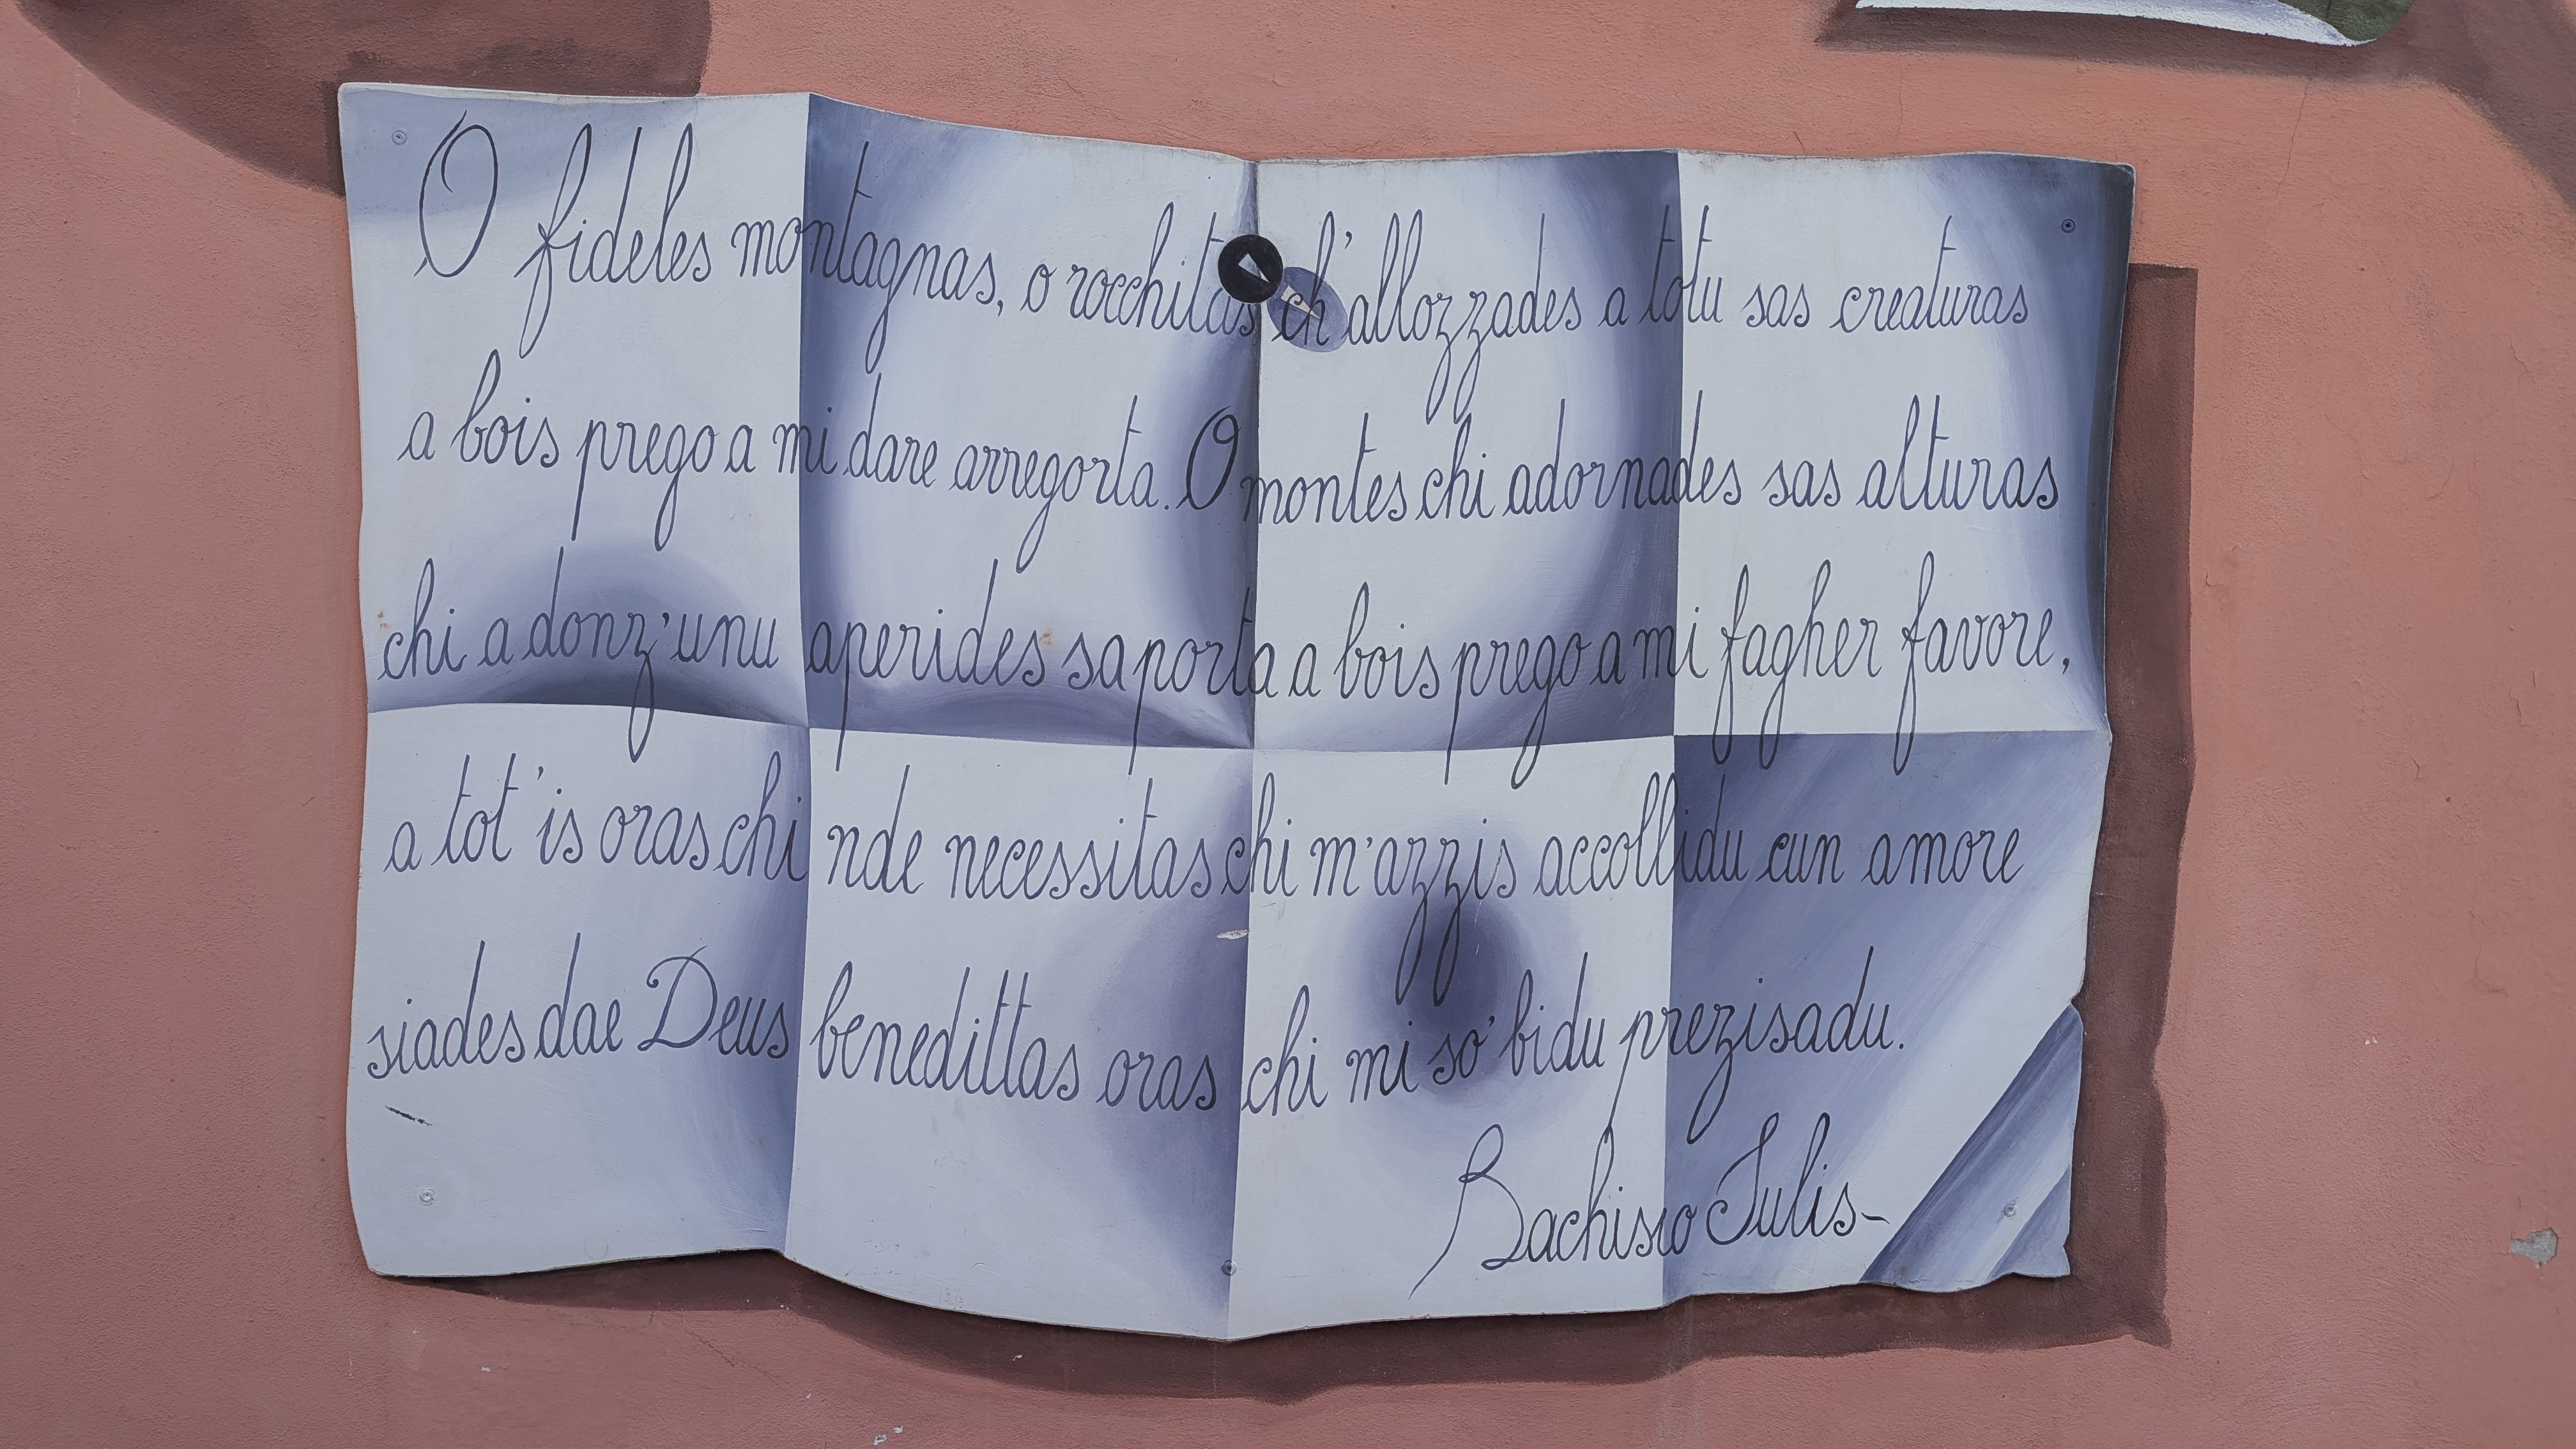 O fideles montagnas, o rocchitas ch'allozzades a totu sas creaturas
a bois prego a mi dare arregorta. O montes chi adornades sas alturas
chi a donz'unu aperides sa porta a bois prego a mi fagher favore,
a tot'is oras chi nde necessitas chi m'azzis accollidu cun amore
siades dae Deus benedittas oras chi mi so' bidu prezisadu.
Bachisio Sulis-